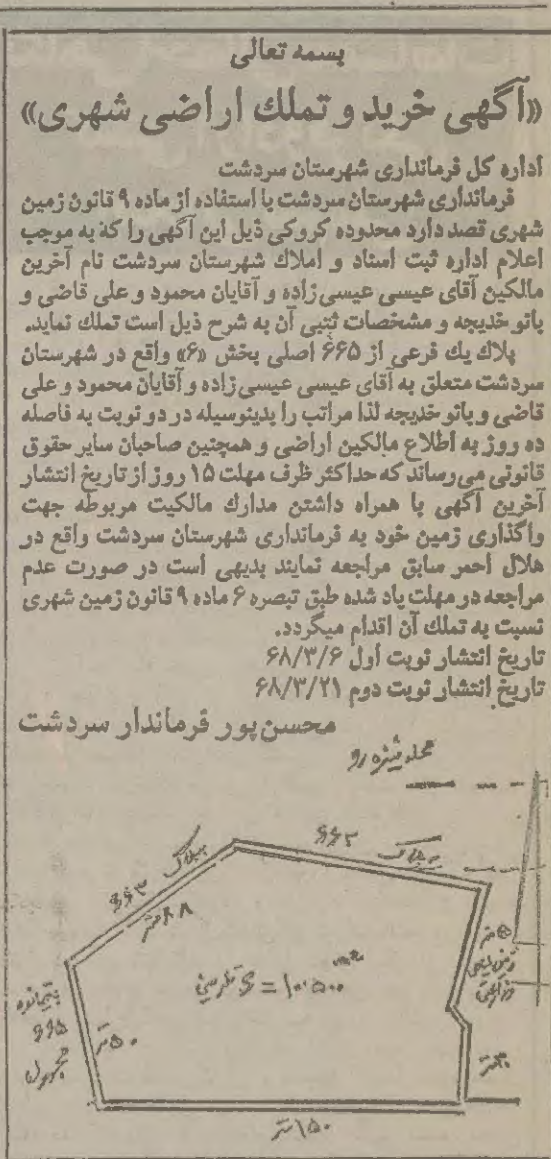 بسمه تعالی
«آگهی خرید و تملك اراضی شهری»
اداره کل فرمانداری شهرستان سردشت
فرمانداری شهرستان سردشت با استفاده از ماده ۹ قانون زمین
شهری قصد دارد محدوده کروکی ذیل این آگهی را که به موجب
اعلام اداره ثبت اسناد و املاك شهرستان سردشت نام آخرین
مالکین آقای عیسی عیسی‌زاده و آقایان محمود و علی قاضی و
بانو خدیجه و مشخصات ثبتی آن به شرح ذیل است تملك نماید.
پلاك یك فرعی از ۶۶۵ اصلی بخش «۶» واقع در شهرستان
سردشت متعلق به آقای عیسی عیسی‌زاده و آقایان محمود و علی
قاضی و بانو خدیجه لذا مراتب را بدینوسیله در دو نوبت به فاصله
ده روز به اطلاع مالکین اراضی و همچنین صاحبان سایر حقوق
قانونی می‌رساند که حداکثر ظرف مهلت ۱۵ روز از تاریخ انتشار
آخرین آگهی با همراه داشتن مدارك مالکیت مربوطه جهت
واگذاری زمین خود به فرمانداری شهرستان سردشت واقع در
هلال احمر سابق مراجعه نمایند بدیهی است در صورت عدم
مراجعه در مهلت یاد شده طبق تبصره ۶ ماده ۹ قانون زمین شهری
نسبت به تملك آن اقدام میگردد.
تاریخ انتشار نوبت اول ۶۸/۳/۶
تاریخ انتشار نوبت دوم ۶۸/۳/۲۱
محسن‌پور فرماندار سردشت
محله
به پلاک ۶۶۲
به پلاک ۶۶۳
۸۸ متر
S = ۱۰۵۰۰ m²
باقیمانده
۶۶۵
۵۰ متر
۱۵۰ متر